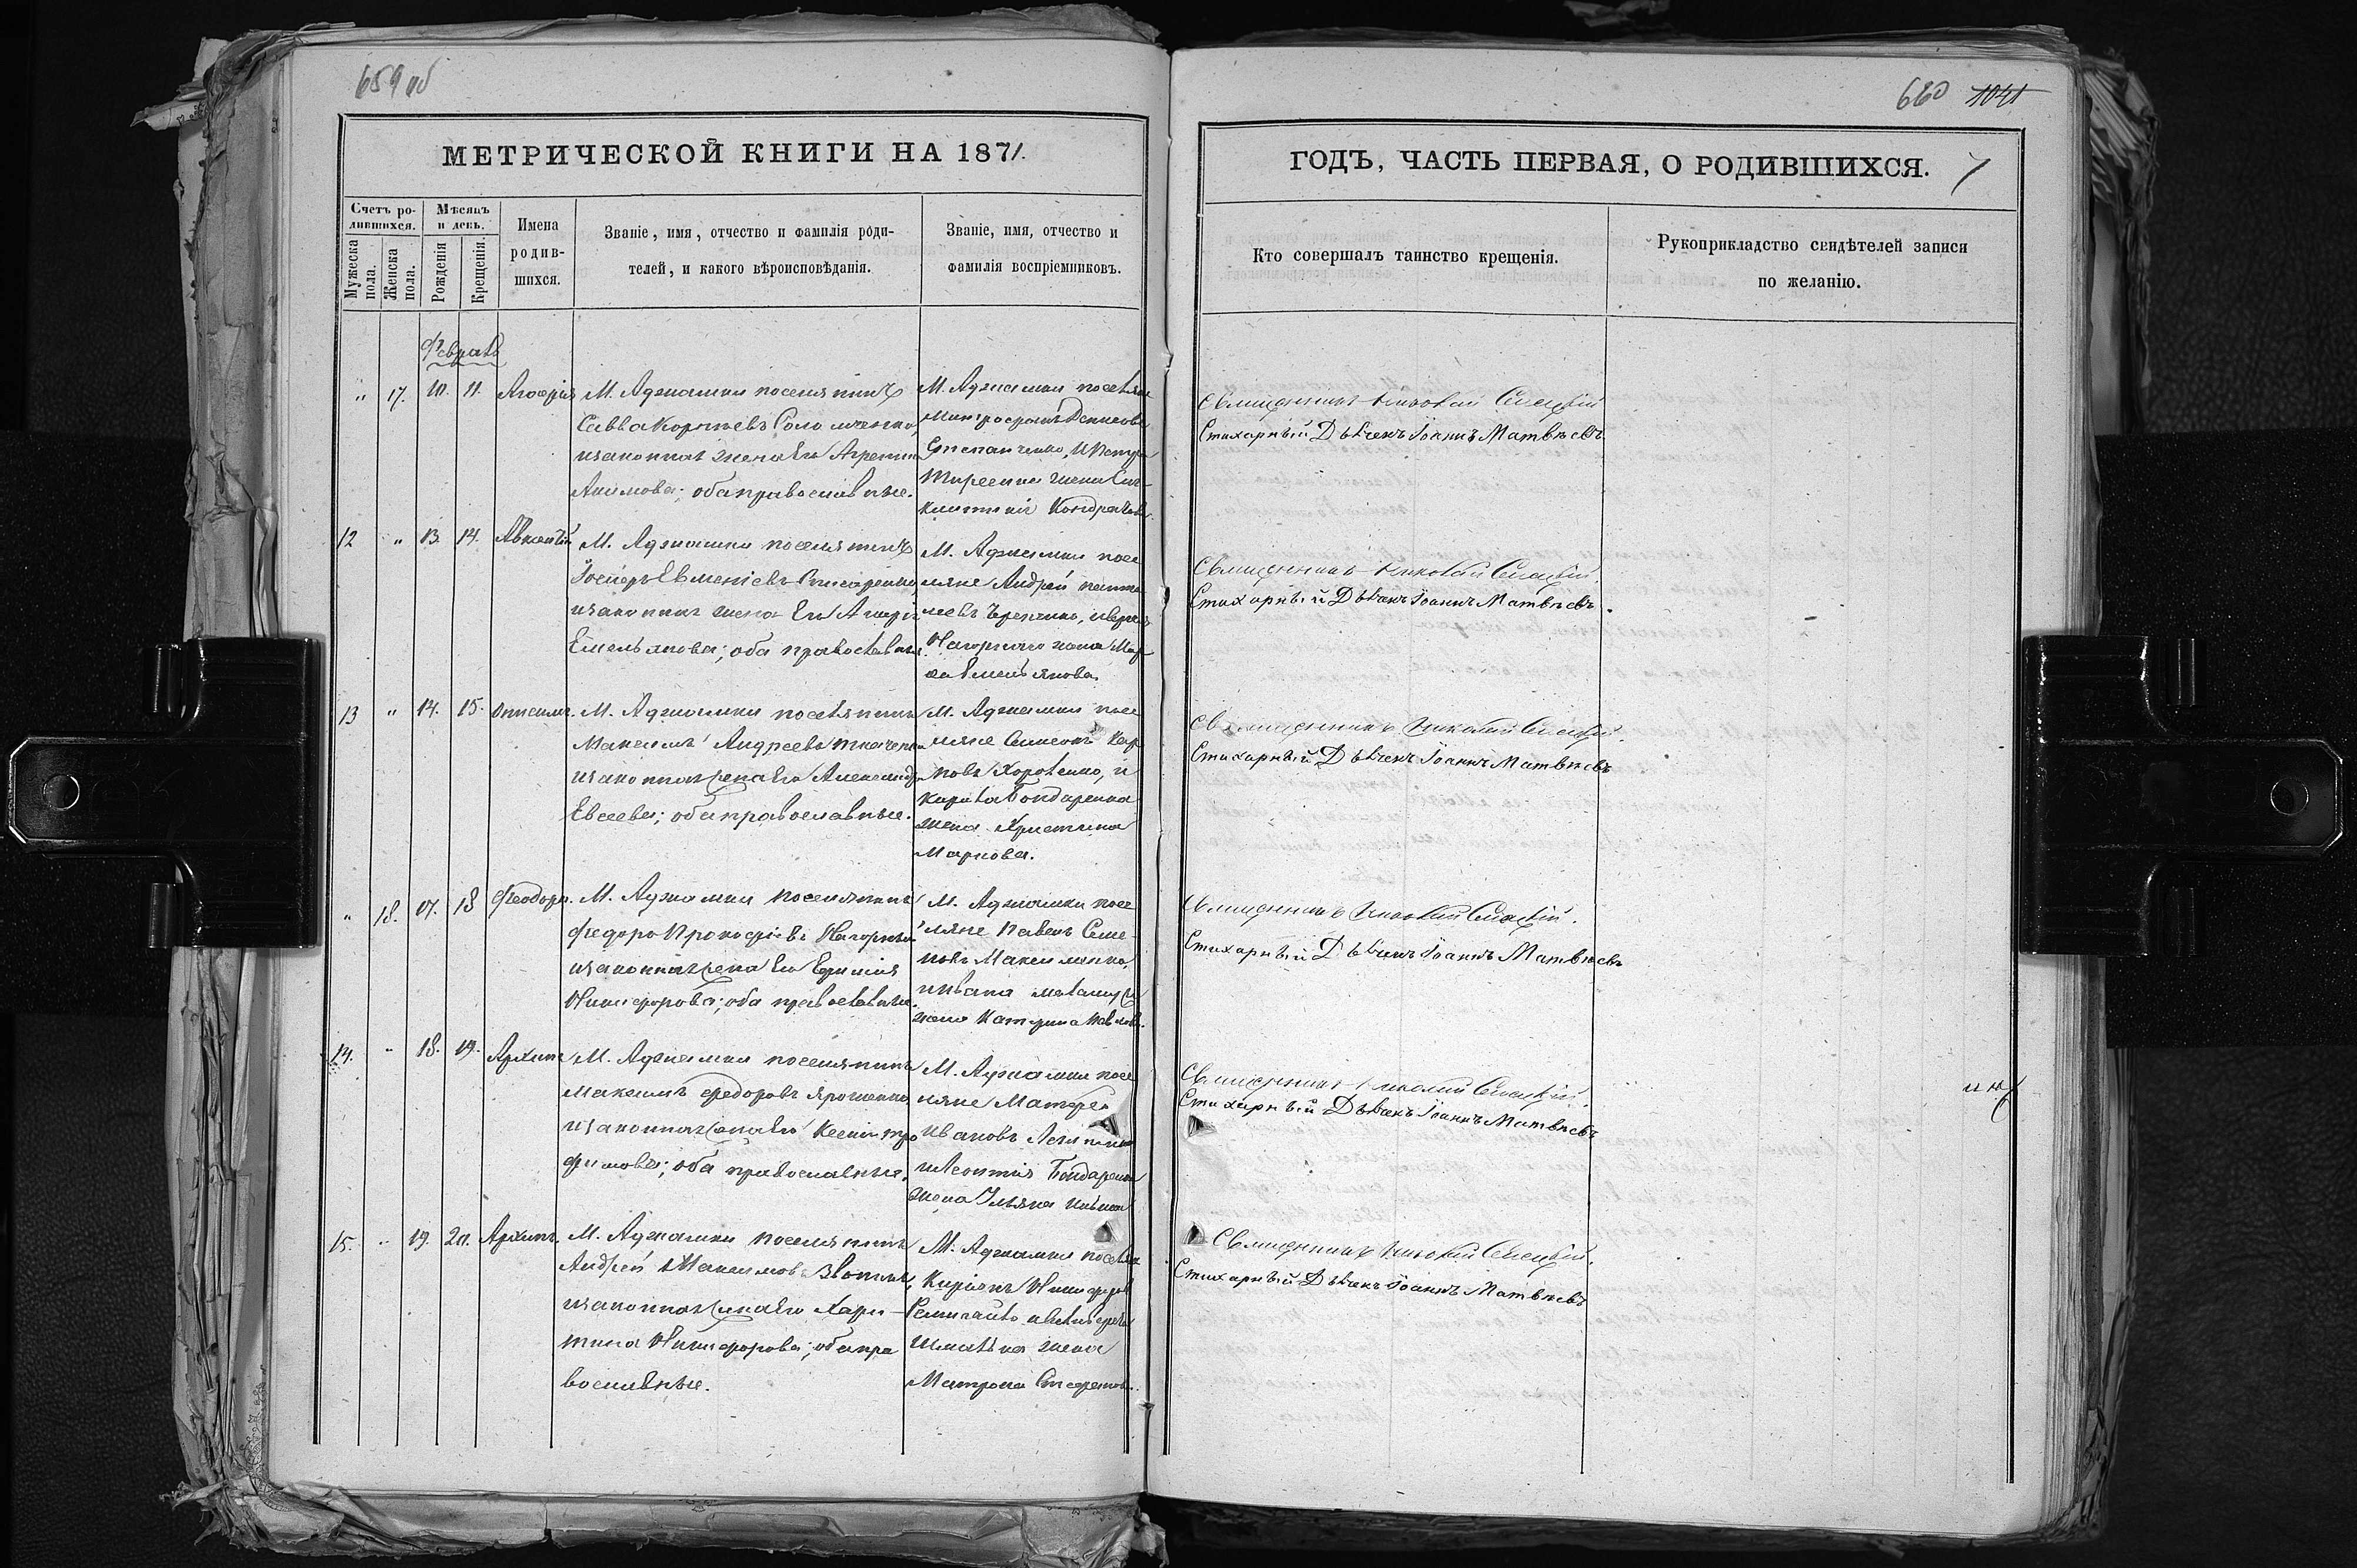 659 об
МЕТРИЧЕСКОЙ КНИГИ НА 1871.
Счетъ ро-
дившихся.
Мѣсяцъ
и день.
Мужеска
пола.
Женска
пола.
Рожденія
Крещенія.
Имена
родив-
шихся.
Званіе, имя, отчество и фамилія роди-
телей, и какого вѣроисповѣданія.
Званіе, имя, отчество и
фамилія воспріемниковъ.
Февраль
" 17. 10. 11.
М. Аджамки поселянинъ
Савва Корнѣевъ Соломченко,
и законная жена Его Агрепина
Акимова; оба православные.
М. Аджамки поселяне
Митрофанъ Денисовъ
Степаненко, и Петра
жена
Кондратова
12 " 13. 14.
М. Аджамки поселянинъ
Іосифъ Евменіевъ Писаренко,
и законная жена Его
Емельянова; оба православные.
М. Аджамки посе
ляне Андрей
Нагорнаго жена Мар
фа Емельянова.
13 " 14. 15. Онисимъ.
М. Аджамки поселянинъ
Максимъ Андреевъ Ткаченко
и законная жена Его Александра
Евсеева; оба православные.
М. Аджамки посе
ляне Симеонъ Кар
повъ и
Кирила Бондаренка
жена Христина
Маркова.
" 18. 17. 18 Феодора.
М. Аджамки поселянинъ
Федоръ Прокофіевъ Нагорный
и законная жена Его Ефимія
Никифорова; оба православные.
М. Аджамки посе
ляне Павелъ Семе
новъ Максименко,
и Ивана
жена Катерина Павлова.
14. " 18. 19. Архипъ
М. Аджамки поселянинъ
Максимъ Федоровъ Ярошенко
и законная жена Его Ксенія Тро
фимова; оба православные.
М. Аджамки посе
ляне Матфей
Ивановъ
и Леонтія Бондаренка
жена Ульяна
15. " 19. 20. Архипъ.
М. Аджамки поселянинъ
Андрей Максимовъ
и законная жена Его Хари-
тина Никифорова; оба пра
вославные.
М. Аджамки поселяне
Киріакъ Никифоровъ
жена
Матрона Стефанова.
660 1041
ГОДЪ, ЧАСТЬ ПЕРВАЯ, О РОДИВШИХСЯ. 7
Кто совершалъ таинство крещенія.
Рукоприкладство свидѣтелей записи
по желанію.
Священникъ Николай
Стихарный Дьячекъ Іоаннъ Матвѣевъ
Священникъ Николай
Стихарный Дьячекъ Іоаннъ Матвѣевъ.
Священникъ Николай
Стихарный Дьячекъ Іоаннъ Матвѣевъ
Священникъ Николай
Стихарный Дьячекъ Іоаннъ Матвѣевъ
Священникъ Николай
Стихарный Дьячекъ Іоаннъ Матвѣевъ
Священникъ Николай
Стихарный Дьячекъ Іоаннъ Матвѣевъ